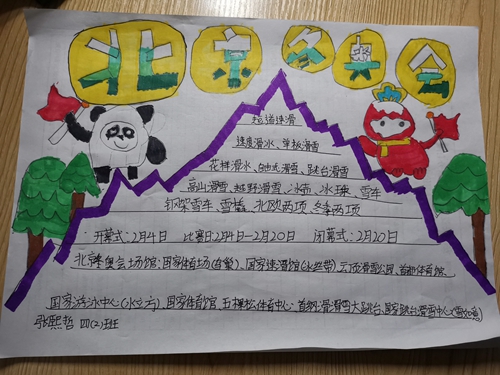 北京冬奥会
短道速滑
速度滑冰、单板滑雪
花样滑冰、自由式滑雪、跳台滑雪
高山滑雪、越野滑雪、冰壶、冰球、雪车
钢架雪车、雪橇、北欧两项、冬季两项
开幕式:2月4日 比赛日:2月4日-2月20日 闭幕式:2月20日
北京冬奥会场馆:国家体育场(鸟巢)、国家速滑馆(冰丝带)、云顶滑雪公园、首都体育馆、
国家游泳中心(水立方)、国家体育馆、五棵松体育中心、首钢滑雪大跳台、国家跳台滑雪中心(雪如意)
张熙哲 四(2)班